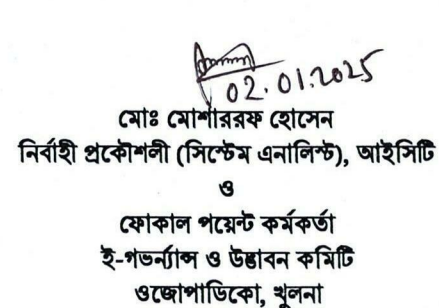 02.01.2025
মোঃ মোশাররফ হোসেন
নির্বাহী প্রকৌশলী (সিস্টেম এনালিস্ট), আইসিটি
ও
ফোকাল পয়েন্ট কর্মকর্তা
ই-গভর্ন্যান্স ও উদ্ভাবন কমিটি
ওজোপাডিকো, খুলনা